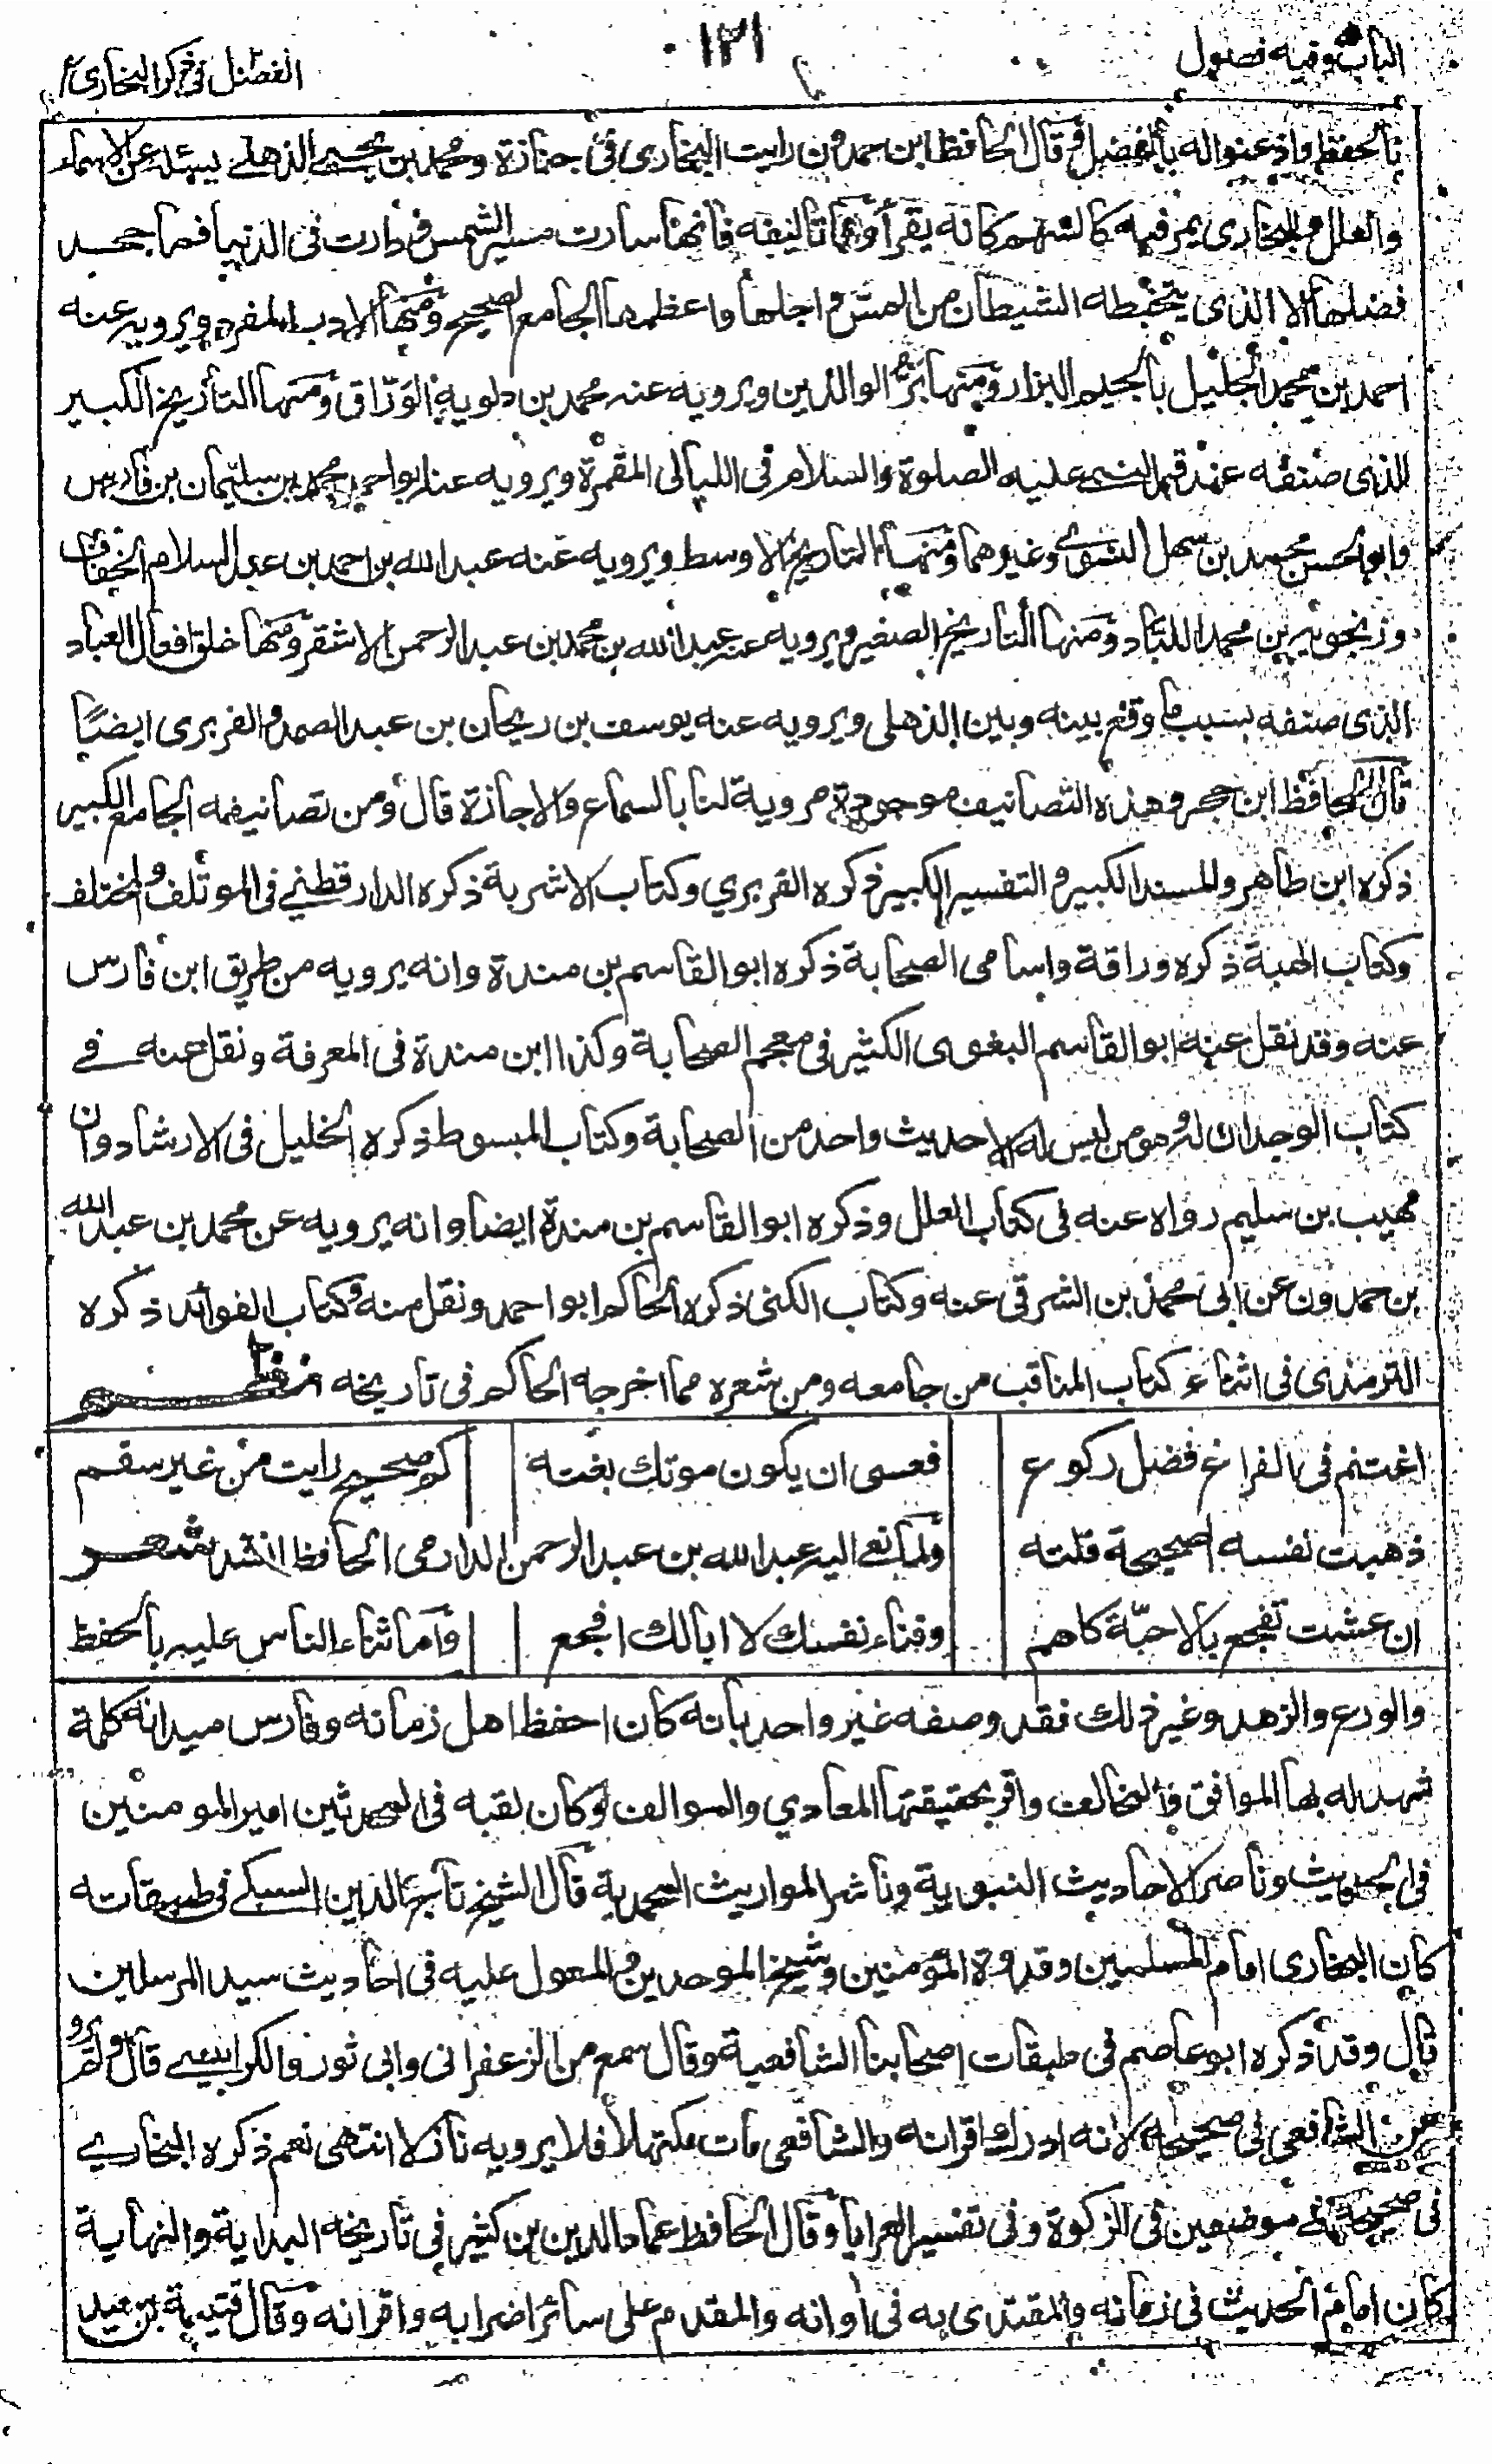 الباب وفيه فصول
١٢١
الفصل في ذكر البخاري
بالحفظ واذعنوا له بالفضل وقال الحافظ ابن حمدون رايت البخاري في جنازة ومحمد بن يحيى الذهلي يسئله عن الاسماء
والعلل والبخاري يمر فيه كالسهم كانه يقرأ واما تاليفه فانها سارت مسير الشمس ودارت في الدنيا فما جحد
فضلها الا الذي يتخبطه الشيطان من المس واجلها واعظمها الجامع الصحيح ومنها الادب المفرد ويرويه عنه
احمد بن محمد الجليل بالجيم البزار ومنها بر الوالدين ويرويه عنه محمد بن دلويه الوراق ومنها التأريخ الكبير
الذي صنفه عند قبر النبي عليه الصلوة والسلام في الليالي المقمرة ويرويه عنه ابو احمد محمد بن سليمان بن فارس
وابو الحسن محمد بن سهل النسوي وغيرهما ومنها التاريخ الاوسط ويرويه عنه عبد الله بن احمد بن عبد السلام الخفاف
وزنجويه بن محمد اللباد ومنها التاريخ الصغير ويرويه عنه عبد الله بن محمد بن عبد الرحمن الاشقر ومنها خلق افعال العباد
الذي صنفه بسبب ما وقع بينه وبين الذهلي ويرويه عنه يوسف بن ريحان بن عبد الصمد والفربري ايضًا
قال الحافظ ابن حجر وهذه التصانيف موجودة مروية لنا بالسماع والاجازة قال ومن تصانيفه الجامع الكبير
ذكره ابن طاهر والمسند الكبير والتفسير الكبير ذكره الفربري وكتاب الاشربة ذكره الدارقطني في الموتلف والمختلف
وكتاب الهبة ذكره وراقة واسامي الصحابة ذكره ابو القاسم بن مندة وانه يرويه من طريق ابن فارس
عنه وقد نقل عنه ابو القاسم البغوي الكثير في معجم الصحابة وكذا ابن مندة في المعرفة ونقل عنه في
كتاب الوحدان له وهو من ليس له الا حديث واحد من الصحابة وكتاب المبسوط ذكره الخليل في الارشاد وان
مهيب بن سليم رواه عنه في كتاب العلل وذكره ابو القاسم بن مندة ايضا وانه يرويه عن محمد بن عبد الله
بن حمدون عن ابي محمد بن الشرقي عنه وكتاب الكنى ذكره الحاكم ابو احمد ونقل منه وكتاب الفوائد ذكره
الترمذي في اثناء كتاب المناقب من جامعه ومن شعره مما اخرجه الحاكم في تاريخه
اغتنم في الفراغ فضل ركوع فعسى ان يكون موتك بغته كم صحيح رايت من غير سقم
ذهبت نفسه الصحيحة فلته ولما نعي اليه عبد الله بن عبد الرحمن الدارمي الحافظ انشد شعر
ان عشت تفجع بالاحبة كلهم وفناء نفسك لا ابالك افجع واما ثناء الناس عليه بالحفظ
والورع والزهد وغير ذلك فقد وصفه غير واحد بانه كان احفظ اهل زمانه وفارس ميدانه كلمة
شهد له بها الموافق والمخالف واقر بحقيقتها المعادي والموالف وكان لقبه في المحدثين امير المومنين
في الحديث وناصر الاحاديث النبوية وناشر المواريث المحمدية قال الشيخ تاج الدين السبكي في طبقاته
كان البخاري امام المسلمين وقدوة المؤمنين وشيخ الموحدين والمعول عليه في احاديث سيد المرسلين
قال وقد ذكره ابو عاصم في طبقات اصحابنا الشافعية وقال سمع من الزعفراني وابي ثور والكرابيسي قال ولم يرو
عن الشافعي في صحيحه لانه ادرك اقرانه والشافعي مات مكتهلا فلا يرويه نازلا انتهى نعم ذكره البخاري
في صحيحه في موضعين في الزكوة وفي تفسير العرايا وقال الحافظ عماد الدين بن كثير في تاريخه البداية والنهاية
كان امام الحديث في زمانه والمقتدى به في اوانه والمقدم على سائر اضرابه واقرانه وقال قتيبة بن سعيد